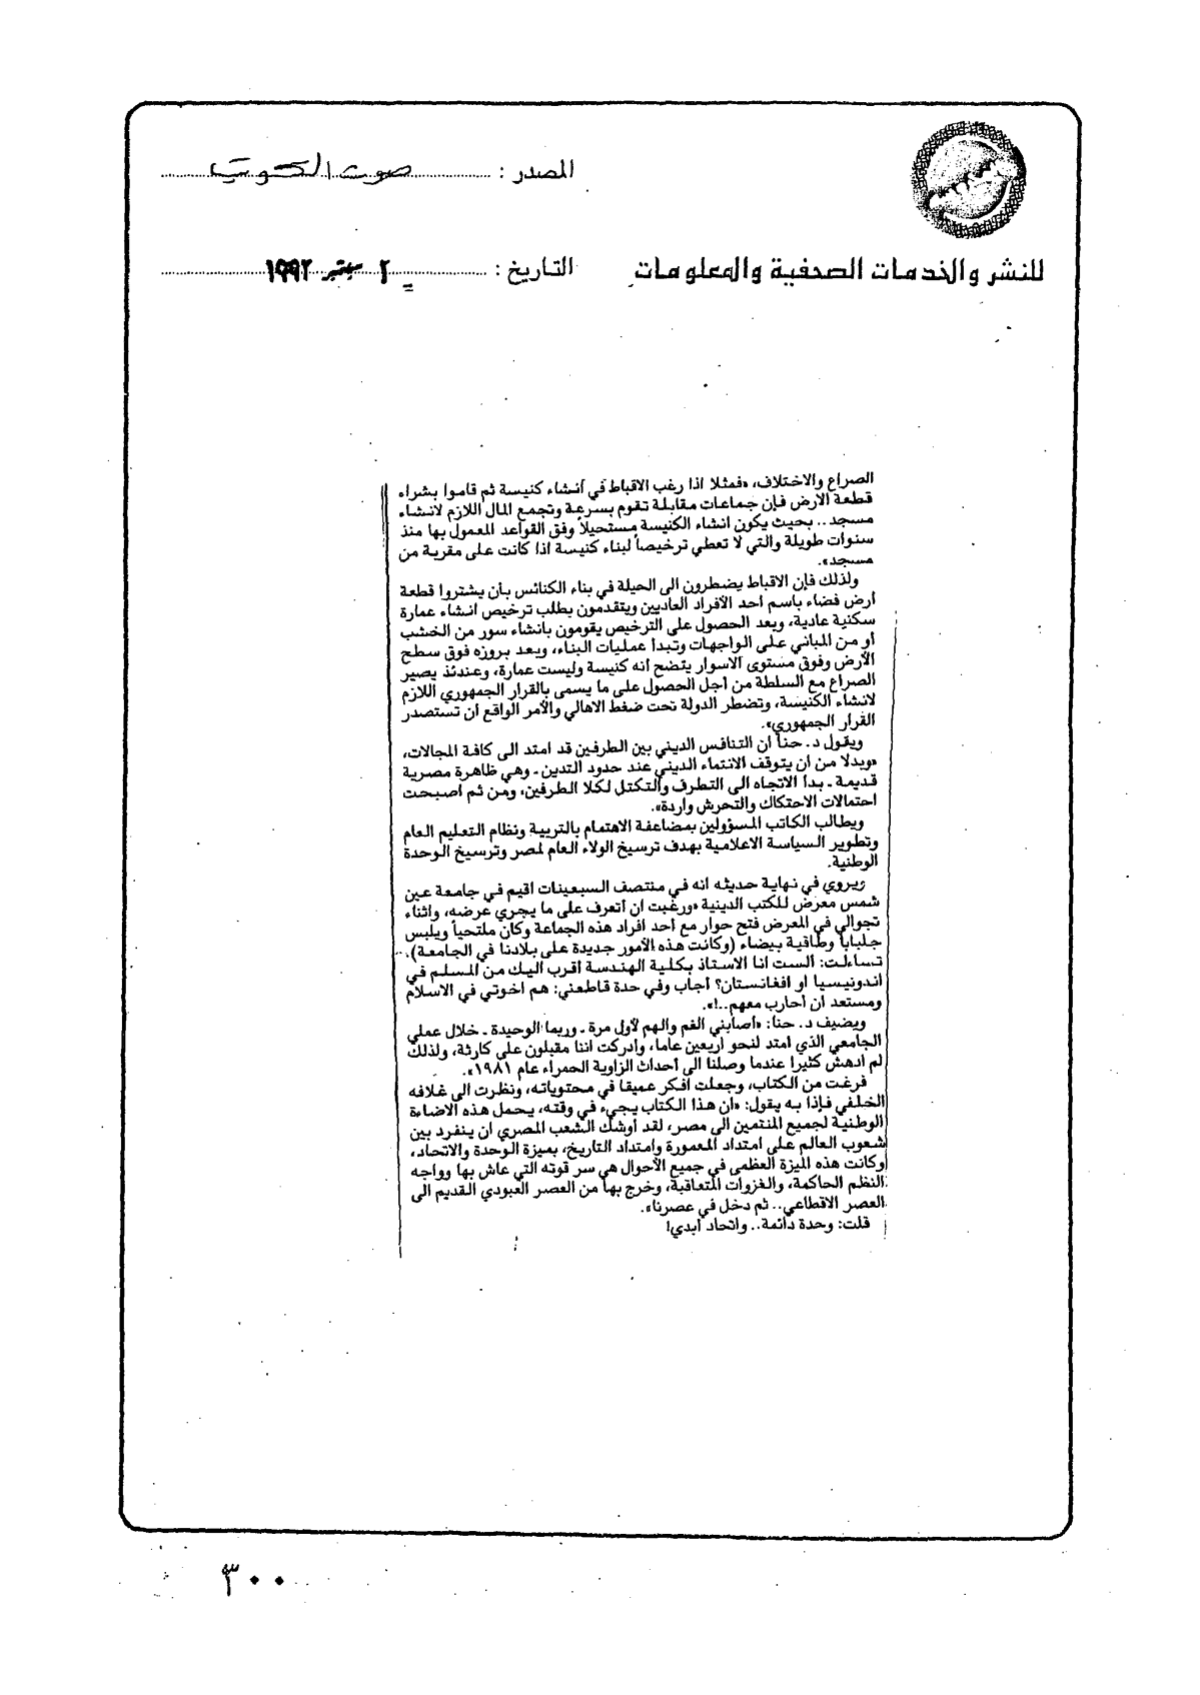 المصدر : صوت الكويت
للنشر والخدمات الصحفية والمعلومات
التاريخ : ٢ سبتمبر ١٩٩٢
الصراع والاختلاف، «فمثلا اذا رغب الاقباط في انشاء كنيسة ثم قاموا بشراء
قطعة الارض فإن جماعات مقابلة تقوم بسرعة وتجمع المال اللازم لانشاء
مسجد.. بحيث يكون انشاء الكنيسة مستحيلاً وفق القواعد المعمول بها منذ
سنوات طويلة والتي لا تعطي ترخيصاً لبناء كنيسة اذا كانت على مقربة من
مسجد».
ولذلك فإن الاقباط يضطرون الى الحيلة في بناء الكنائس بأن يشتروا قطعة
أرض فضاء باسم احد الأفراد العاديين ويتقدمون بطلب ترخيص انشاء عمارة
سكنية عادية، وبعد الحصول على الترخيص يقومون بانشاء سور من الخشب
او من المباني على الواجهات وتبدأ عمليات البناء، وبعد بروزه فوق سطح
الأرض وفوق مستوى الاسوار يتضح انه كنيسة وليست عمارة، وعندئذ يصير
الصراع مع السلطة من اجل الحصول على ما يسمى بالقرار الجمهوري اللازم
لانشاء الكنيسة، وتضطر الدولة تحت ضغط الاهالي والأمر الواقع ان تستصدر
القرار الجمهوري».
ويقول د. حنا ان التنافس الديني بين الطرفين قد امتد الى كافة المجالات،
«وبدلا من ان يتوقف الانتماء الديني عند حدود التدين ـ وهي ظاهرة مصرية
قديمة ـ بدأ الاتجاه الى التطرف والتكتل لكلا الطرفين، ومن ثم اصبحت
احتمالات الاحتكاك والتحرش واردة».
ويطالب الكاتب المسؤولين بمضاعفة الاهتمام بالتربية ونظام التعليم العام
وتطوير السياسة الاعلامية بهدف ترسيخ الولاء العام لمصر وترسيخ الوحدة
الوطنية.
ويروي في نهاية حديثه انه في منتصف السبعينات اقيم في جامعة عين
شمس معرض للكتب الدينية «ورغبت ان أتعرف على ما يجري عرضه، واثناء
تجوالي في المعرض فتح حوار مع احد افراد هذه الجماعة وكان ملتحياً ويلبس
جلباباً وطاقية بيضاء (وكانت هذه الأمور جديدة على بلادنا في الجامعة).
تساءلت: الست انا الاستاذ بكلية الهندسة اقرب اليك من المسلم في
اندونيسيا او افغانستان؟ أجاب وفي حدة قاطعني: هم اخوتي في الاسلام
ومستعد ان أحارب معهم..!».
ويضيف د. حنا: «أصابني الغم والهم لأول مرة ـ وربما الوحيدة ـ خلال عملي
الجامعي الذي امتد لنحو اربعين عاما، وأدركت اننا مقبلون على كارثة، ولذلك
لم ادهش كثيرا عندما وصلنا الى أحداث الزاوية الحمراء عام ١٩٨١».
فرغت من الكتاب، وجعلت افكر عميقا في محتوياته، ونظرت الى غلافه
الخلفي فإذا به يقول: «ان هذا الكتاب يجيء في وقته، يحمل هذه الاضاءة
الوطنية لجميع المنتمين الى مصر، لقد أوشك الشعب المصري ان ينفرد بين
شعوب العالم على امتداد المعمورة وامتداد التاريخ، بميزة الوحدة والاتحاد،
وكانت هذه الميزة العظمى في جميع الأحوال هي سر قوته التي عاش بها وواجه
النظم الحاكمة، والغزوات المتعاقبة، وخرج بها من العصر العبودي القديم الى
العصر الاقطاعي.. ثم دخل في عصرنا».
قلت: وحدة دائمة.. واتحاد أبدي!
٣٠٠